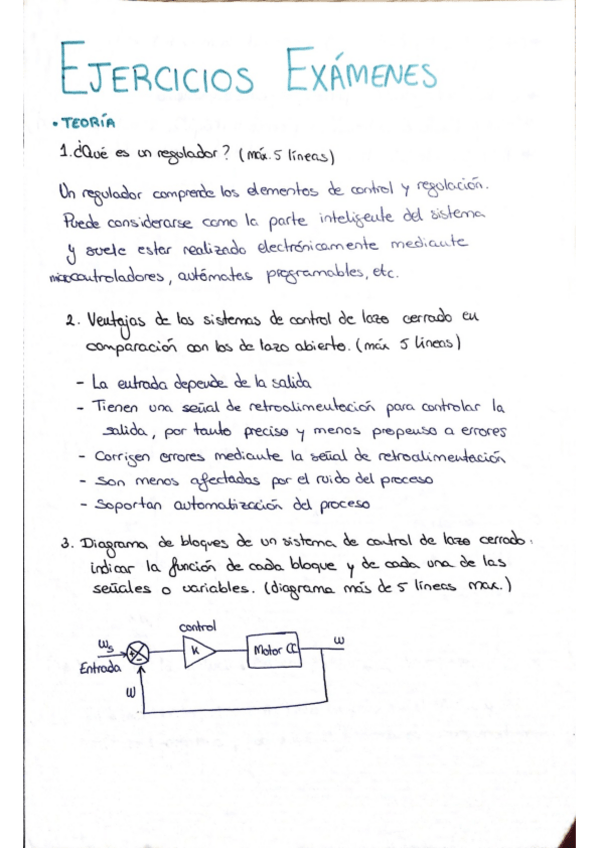 EJERCICIOS EXÁMENES
• TEORÍA
1. ¿Qué es un regulador? (máx. 5 líneas)
Un regulador comprende los elementos de control y regulación.
Puede considerarse como la parte inteligente del sistema
y suele estar realizado electrónicamente mediante
microcontroladores, autómatas programables, etc.
2. Ventajas de los sistemas de control de lazo cerrado en
comparación con los de lazo abierto. (máx 5 líneas)
- La entrada depende de la salida
- Tienen una señal de retroalimentación para controlar la
salida, por tanto preciso y menos propenso a errores
- Corrigen errores mediante la señal de retroalimentación
- Son menos afectadas por el ruido del proceso
- Soportan automatización del proceso
3. Diagrama de bloques de un sistema de control de lazo cerrado:
indicar la función de cada bloque y de cada una de las
señales o variables. (diagrama más de 5 líneas max.)
control
Ws + - K Motor CC W
Entrada
W